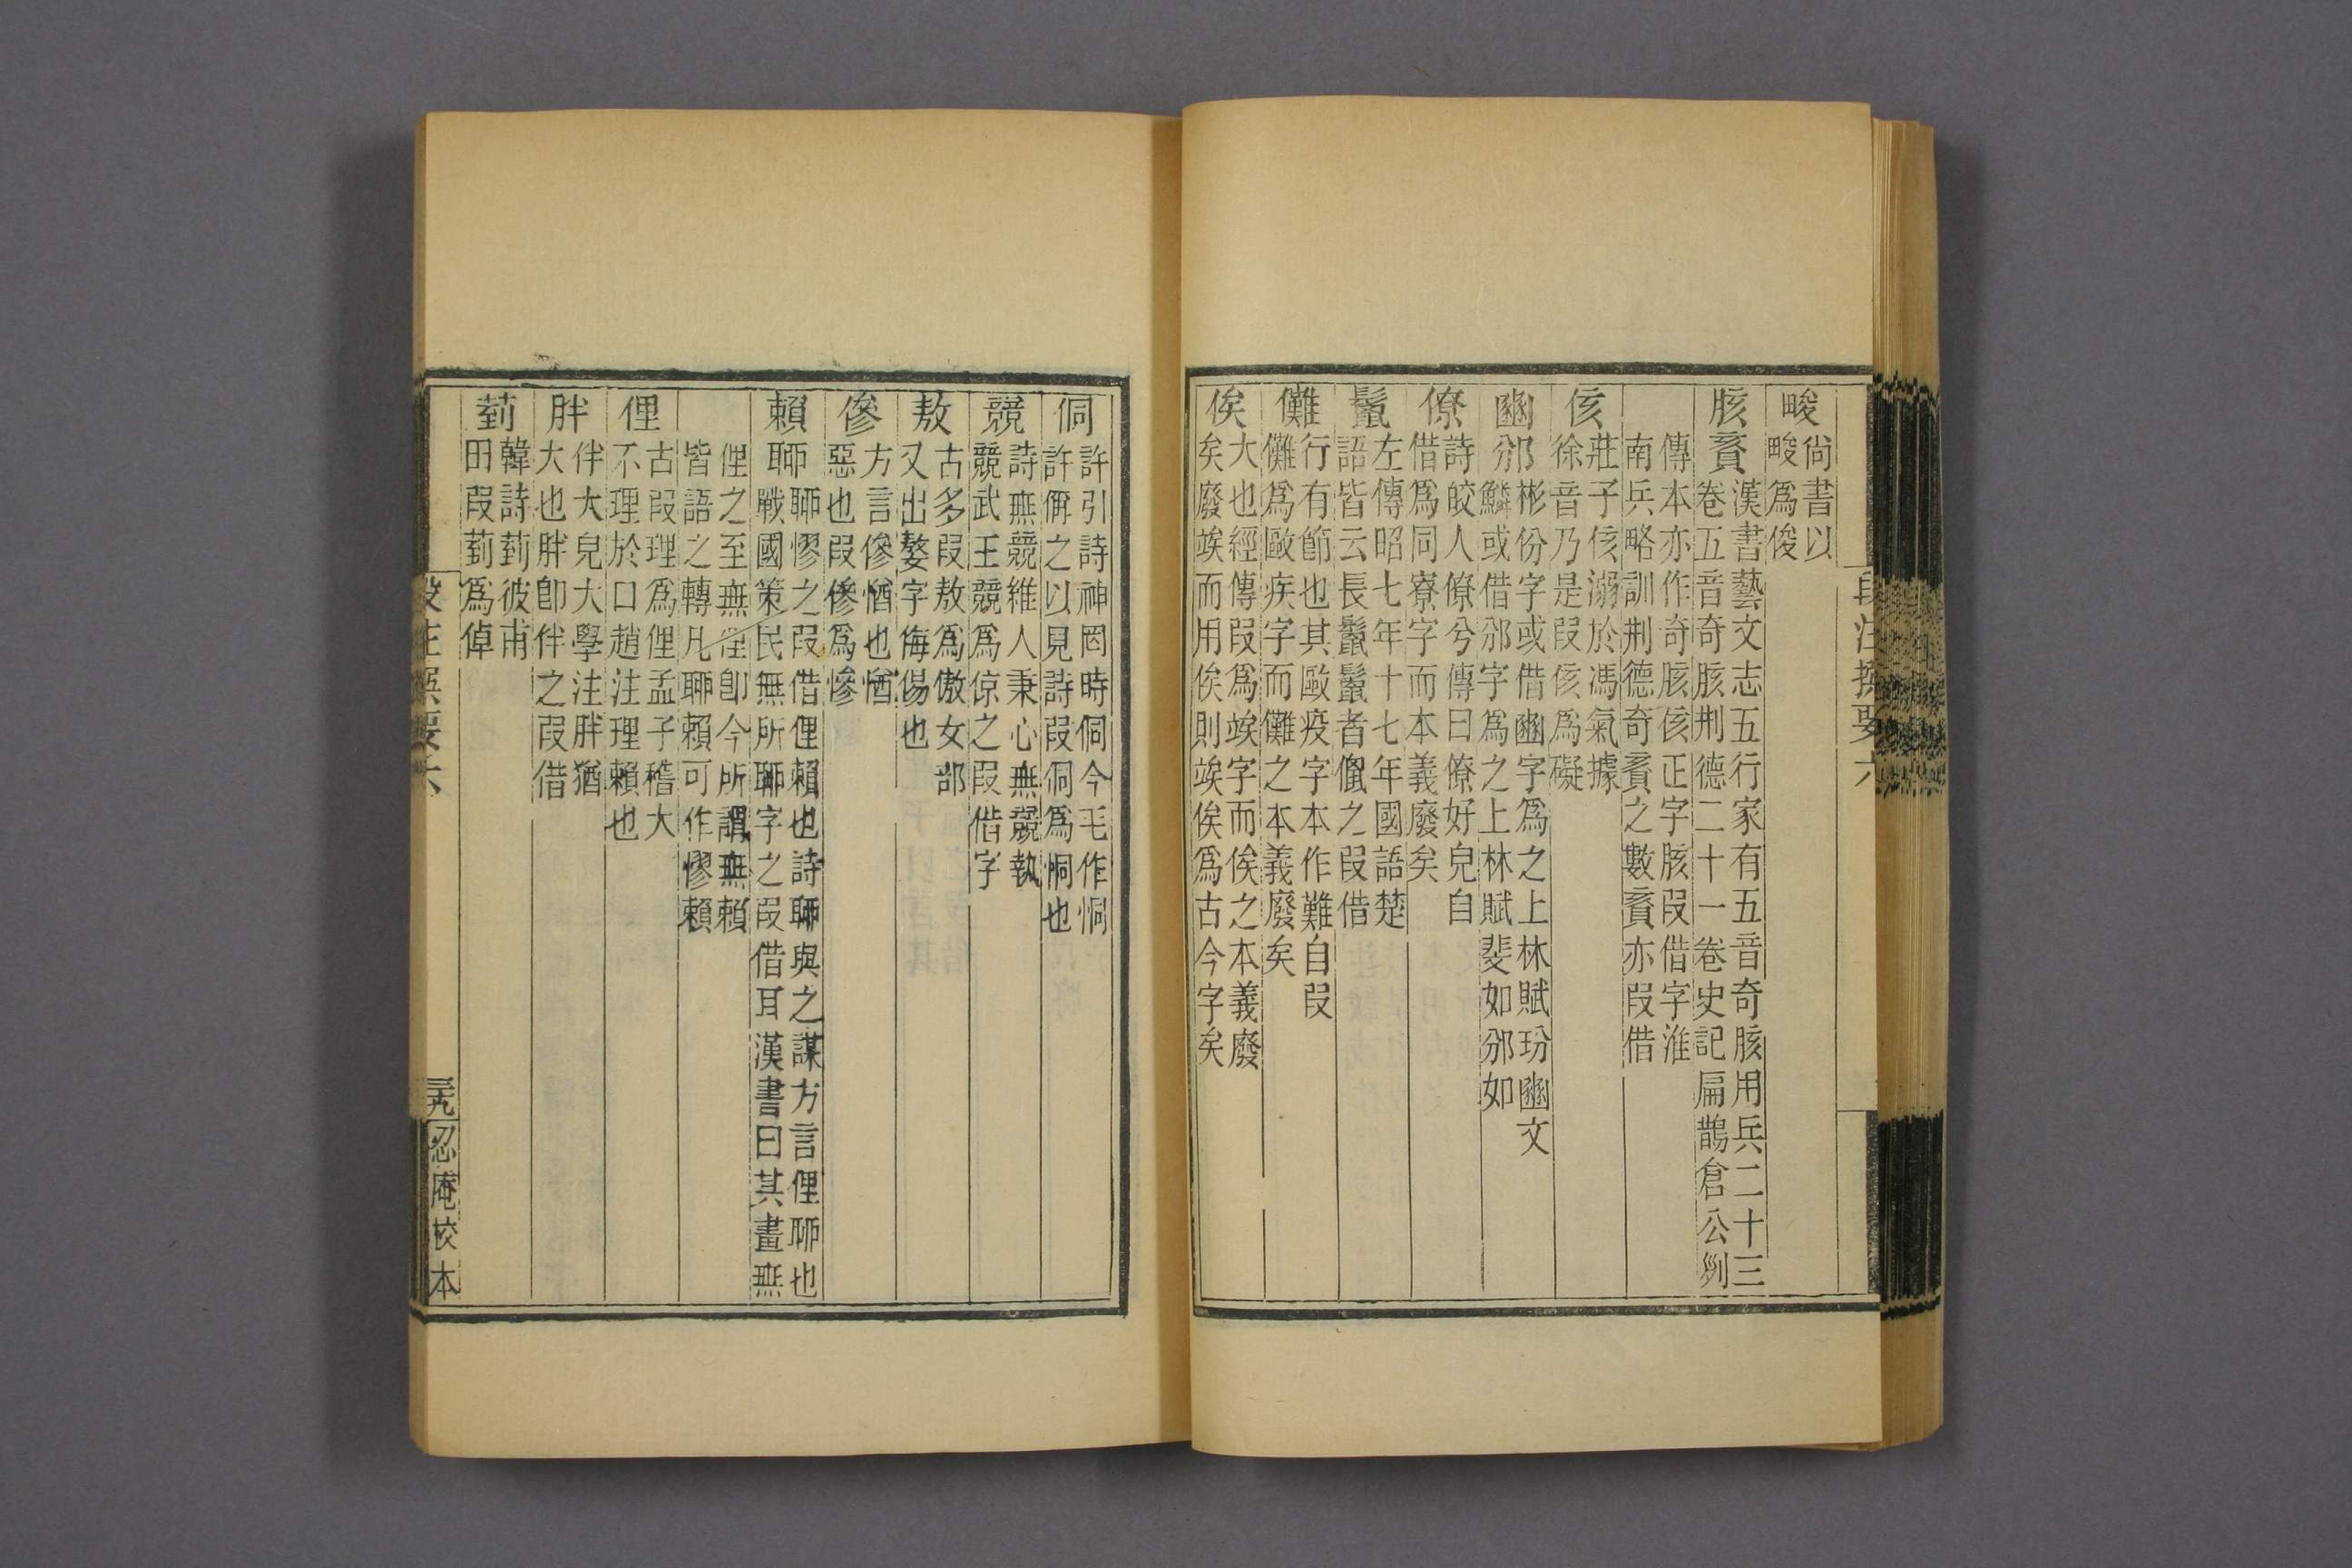 畯 尚書以
畯爲俊
胲賌 漢書藝文志五行家有五音奇胲用兵二十三
卷五音奇胲刑德二十一卷史記扁鵲倉公列
傳本亦作奇胲侅正字胲叚借字淮
南兵略訓刑德奇賌之數賌亦叚借
侅 莊子侅溺於馮氣據
徐音乃是叚侅爲礙
豳 邠彬份字或借豳字爲之上林賦玢豳文
鱗或借邠字爲之上林賦斐如邠如
僚 詩皎人僚兮傳曰僚好皃自
借爲同寮字而本義廢矣
鬣 左傳昭七年十七年國語楚
語皆云長鬣鬣者儠之叚借
儺 行有節也其歐疫字本作難自叚
儺爲歐疾字而儺之本義廢矣
俟 大也經傳叚爲竢字而俟之本義廢
矣廢竢而用俟則竢俟爲古今字矣
段注撰要六
侗 許引詩神罔時侗今毛作恫
許偁之以見詩叚侗爲恫也
競 詩無競維人秉心無競執
競武王競爲倞之叚借字
敖 古多叚敖爲傲女部
又出嫯字侮傷也
傪 方言傪惛也惛
惡也叚傪爲慘
賴聊 聊憀之叚借俚賴也詩聊與之謀方言俚聊也
戰國策民無所聊字之叚借耳漢書曰其畫無
俚之至無俚卽今所謂無賴
皆語之轉凡聊賴可作憀賴
俚 古叚理爲俚孟子稽大
不理於口趙注理賴也
胖 伴大皃大學注胖猶
大也胖卽伴之叚借
菿 韓詩菿彼甫
田叚菿爲倬
段注撰要六
忍庵校本